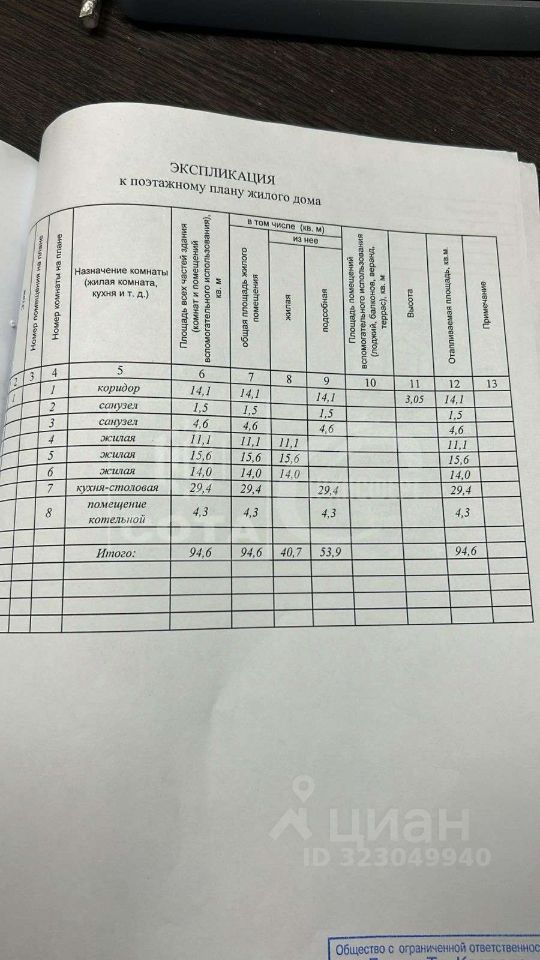 ЭКСПЛИКАЦИЯ
к поэтажному плану жилого дома
Номер помещения на плане
Номер комнаты на плане
Назначение комнаты
(жилая комната,
кухня и т. д.)
Площадь всех частей здания
(комнат и помещений
вспомогательного использования),
кв. м
в том числе (кв. м)
общая площадь жилого
помещения
из нее
жилая
подсобная
Площадь помещений
вспомогательного использования
(лоджий, балконов, веранд,
террас), кв. м
Высота
Отапливаемая площадь, кв.м
Примечание
2 3 4 5 6 7 8 9 10 11 12 13
1 1 коридор 14,1 14,1 14,1 3,05 14,1
2 санузел 1,5 1,5 1,5 1,5
3 санузел 4,6 4,6 4,6 4,6
4 жилая 11,1 11,1 11,1 11,1
5 жилая 15,6 15,6 15,6 15,6
6 жилая 14,0 14,0 14,0 14,0
7 кухня-столовая 29,4 29,4 29,4 29,4
8 помещение
котельной 4,3 4,3 4,3 4,3
Итого: 94,6 94,6 40,7 53,9 94,6
циан
ID 323049940
Общество с ограниченной ответственнос